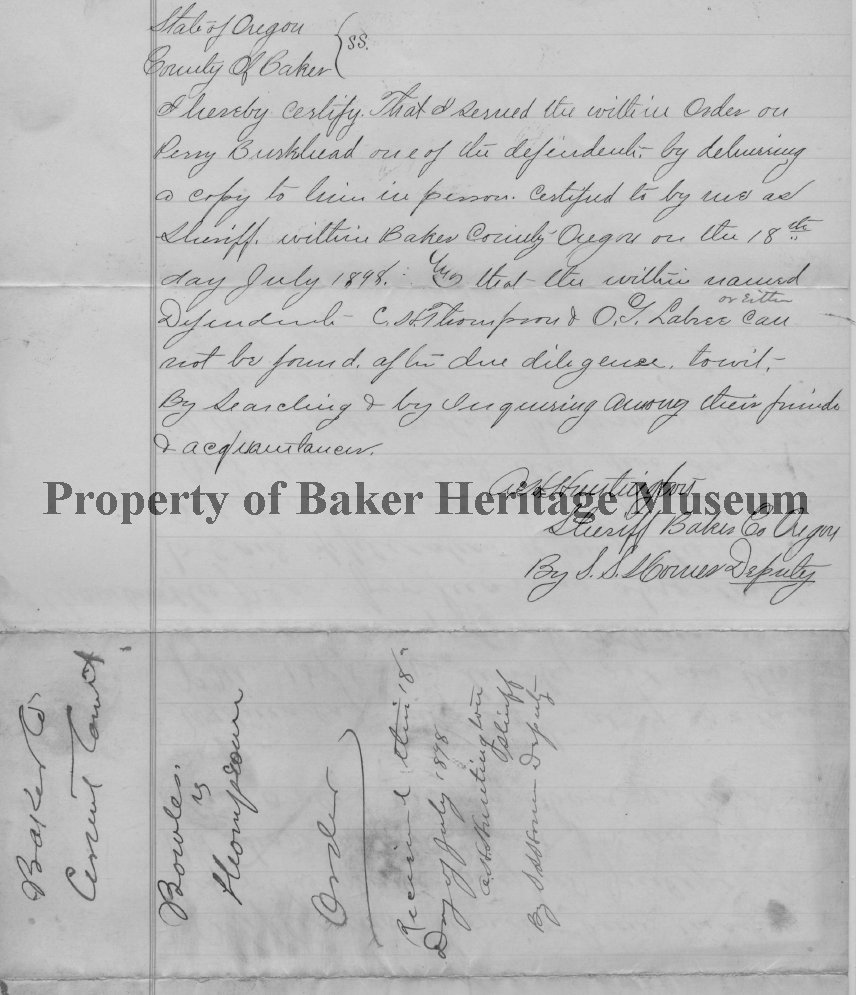 State of Oregon
County of Baker } ss.
I hereby certify. That I served the within Order on
Perry Burkhead one of the defendents, by delivering
a copy to him in person. Certified to by me as
Sheriff. within Baker County Oregon on the 18th
day July 1898. that the within named
or Either
Defendents C. H. Thompson & O. G. Labree Can
not be found, after due diligence, towit,
By Searching & by Inquiring among their friends
& acquaintances.
Huntington
Property of Baker Heritage Museum
Sheriff Baker Co Oregon
By S. S. Deputy
Baker Co
Circuit Court
Bowles
vs
Thompson
Order
Received this 18
Day of July 1898
Huntington
Sheriff
By Deputy